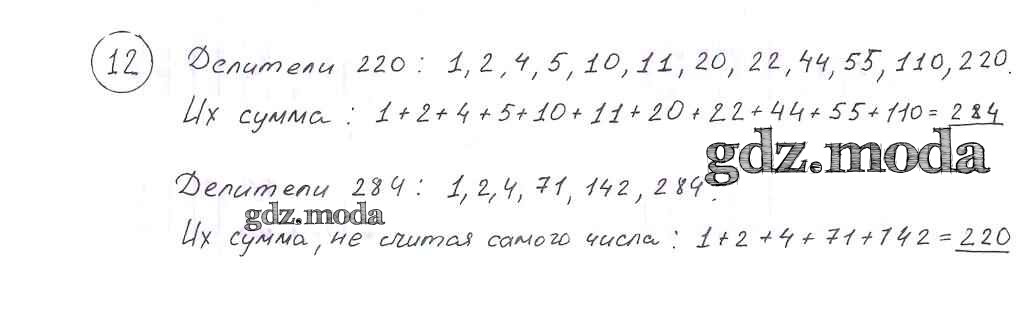 12 Делители 220 : 1, 2, 4, 5, 10, 11, 20, 22, 44, 55, 110, 220.
Их сумма : 1 + 2 + 4 + 5 + 10 + 11 + 20 + 22 + 44 + 55 + 110 = 284
gdz.moda
Делители 284 : 1, 2, 4, 71, 142, 284.
gdz.moda
Их сумма, не считая самого числа : 1 + 2 + 4 + 71 + 142 = 220